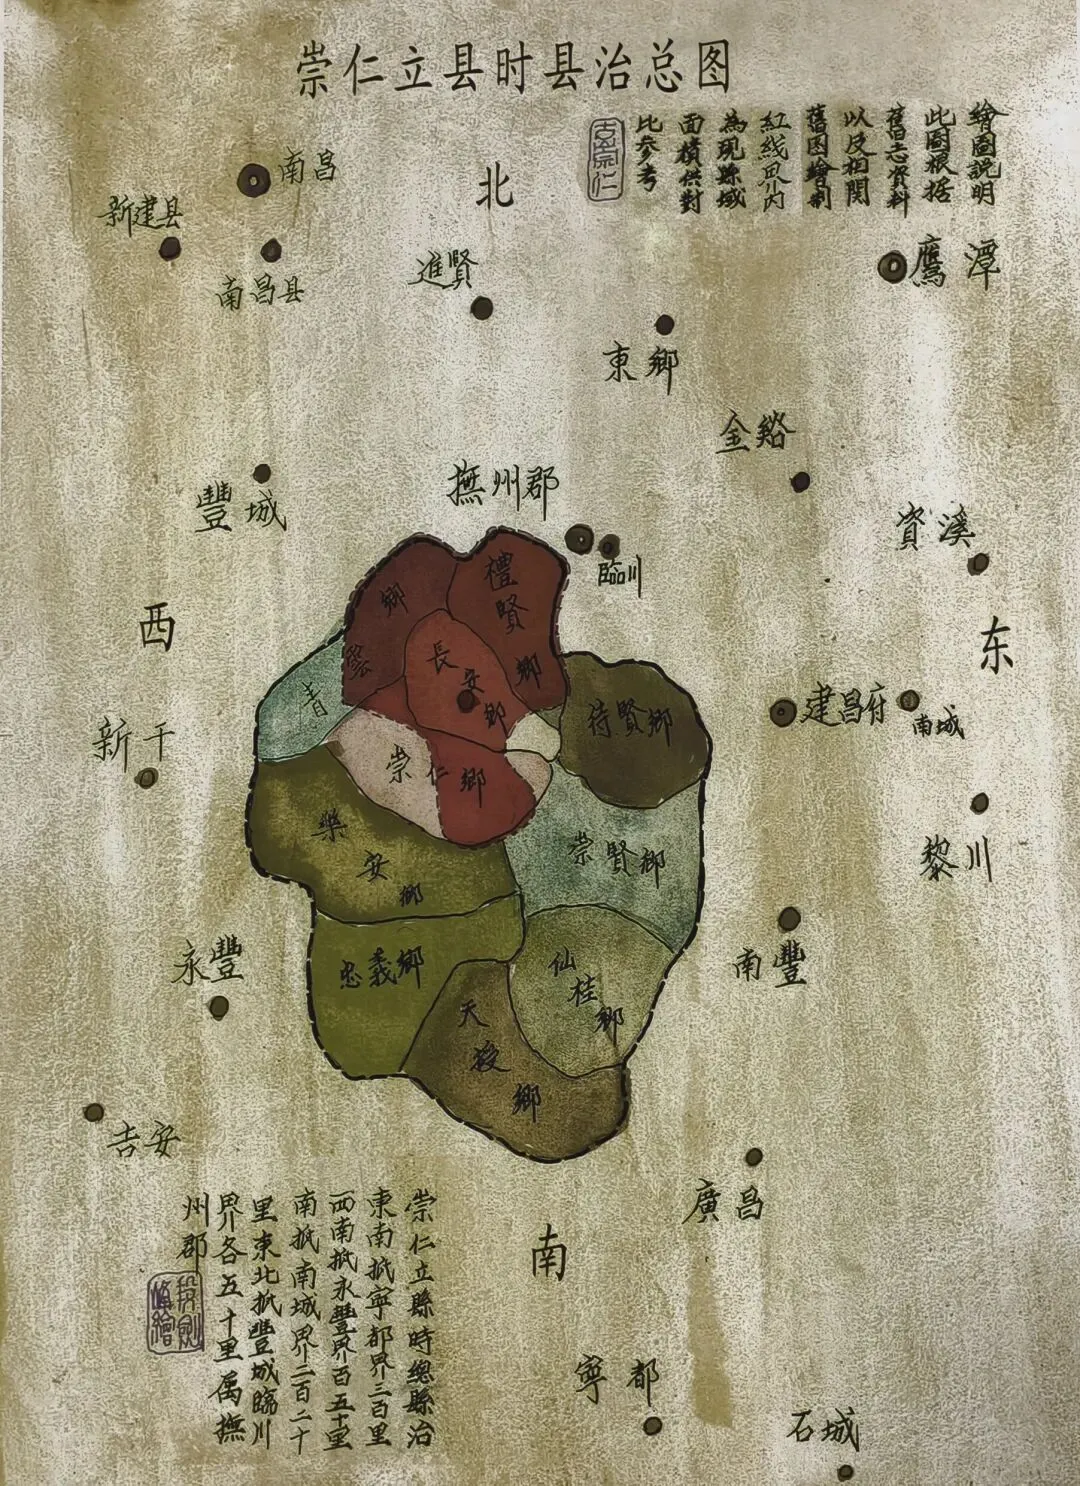 崇仁立县时县治总图
繪圖説明
此圖根据
舊志資料
以及相関
舊图繪制
紅线界内
為现縣域
面積供對
比参考
古崇仁
北
南昌
新建县
南昌县
進賢
鷹潭
東鄉
金谿
撫州郡
臨川
豐城
資溪
西
东
新干
建昌府
南城
黎川
禮賢鄉
青雲鄉
長安鄉
崇仁鄉
待賢鄉
樂安鄉
崇賢鄉
忠義鄉
仙桂鄉
天授鄉
永豐
南豐
吉安
廣昌
南
寧都
石城
崇仁立縣時總縣治
東南抵寧都界三百里
西南抵永豐界百五十里
南抵南城界二百二十
里東北抵豐城臨川
界各五十里属撫
州郡